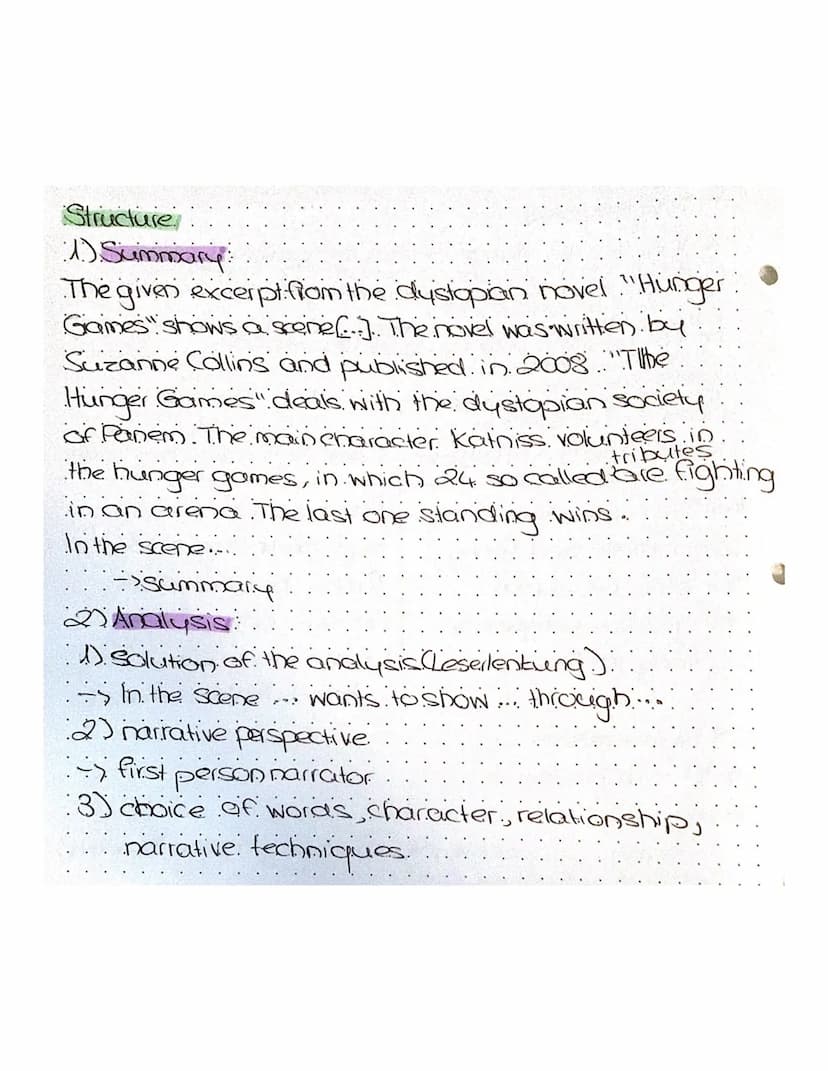 Structure
1) Summary:
The given excerpt from the dystopian novel "Hunger
Games" shows a scene[...]. The novel was written by
Suzanne Collins and published in 2008. "The
Hunger Games" deals with the dystopian society
of Panem. The main character Katniss volunteers in
tributes
the hunger games, in which 24 so called are fighting
in an arena. The last one standing wins.
In the scene...
-> summary
2) Analysis:
1) solution of the analysis (Leserlenkung)
-> In the scene ... wants to show ... through...
2) narrative perspective
-> first person narrator
3) choice of words, character, relationship,
narrative techniques